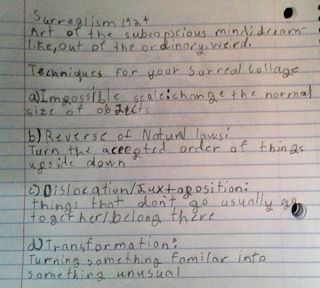 Surrealism 1924
Art of the subconscious mind: dream-
like, out of the ordinary, weird.
Techniques for your Surreal Collage
a) Impossible scale: change the normal
size of objects
b) Reverse of Natural laws:
Turn the accepted order of things
upside down
c) Dislocation/Juxtaposition:
things that don't go usually go
together/belong there
d) Transformation:
Turning something familar into
something unusual